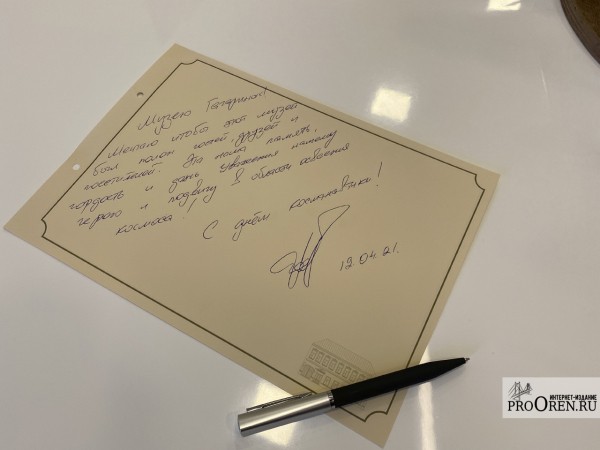 Музею Гагарина!
Мечтаю чтобы этот музей
был полон гостей, друзей и
посетителей. Это наша память,
гордость и дань уважения нашему
герою и подвигу в области освоения
космоса!
С днём космонавтики!
12.04.21.
ИНТЕРНЕТ-ИЗДАНИЕ
PROOREN.RU